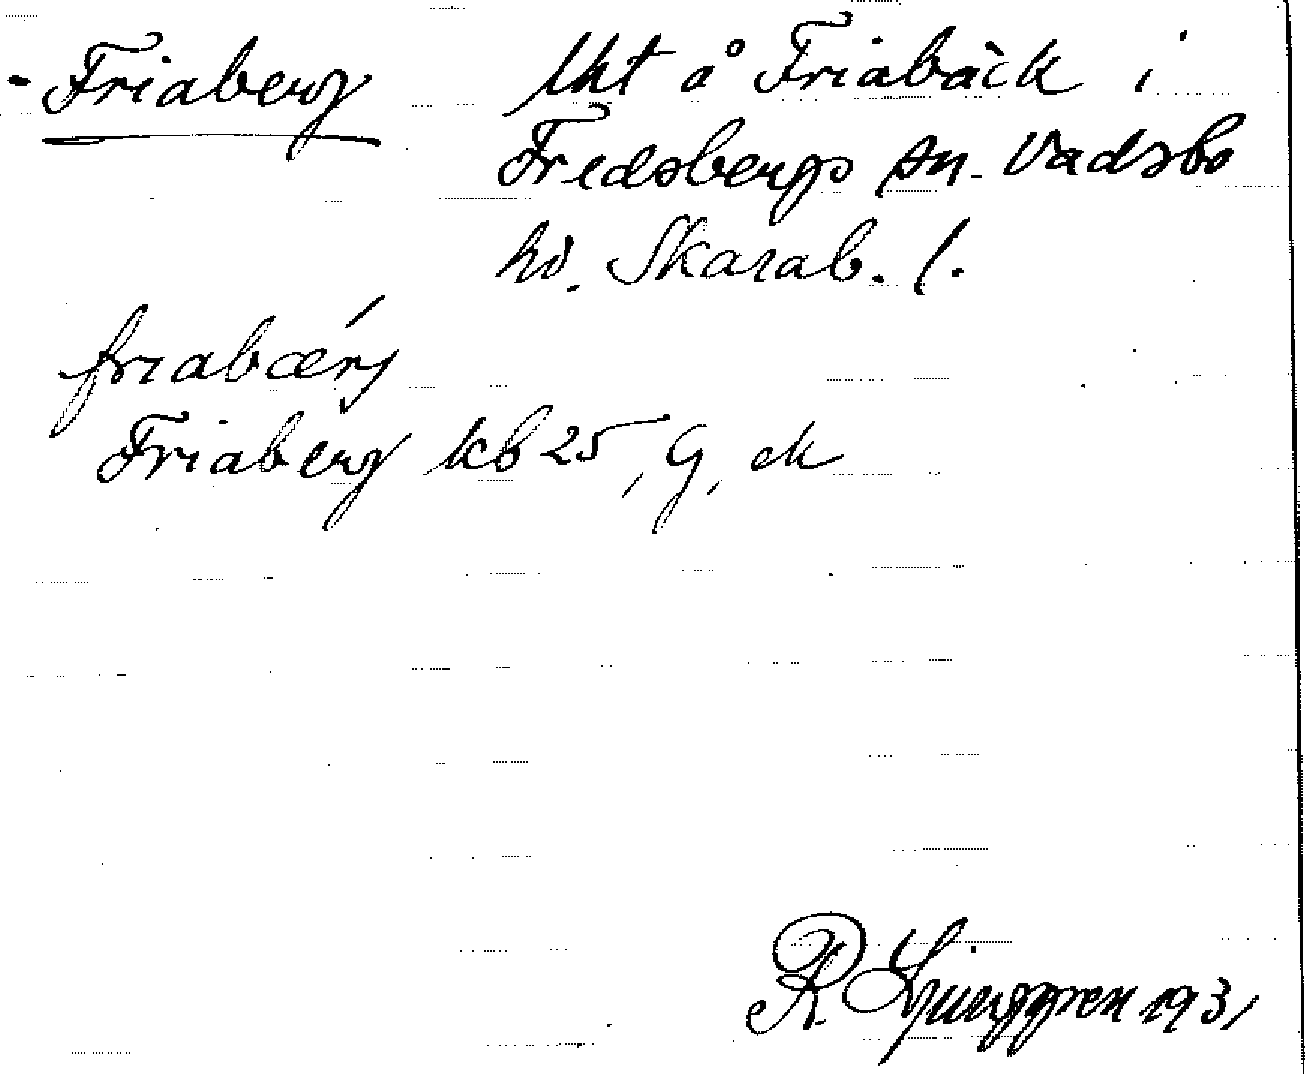 - Friaberg lht å Friabäck i
Fredsbergs sn. Vadsbo
hd. Skarab. l.
friabærj
Friaberg kb 25, G, ek
R Ljunggren 1931